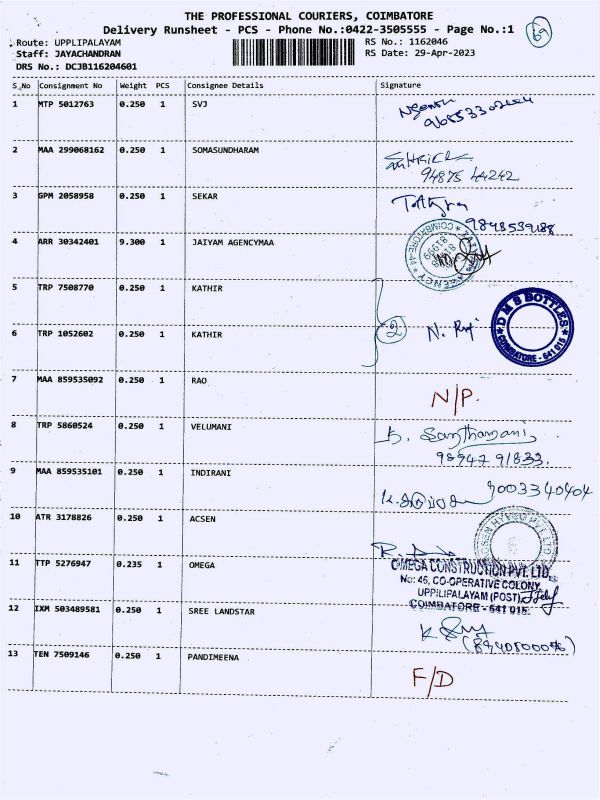 THE PROFESSIONAL COURIERS, COIMBATORE
Delivery Runsheet - PCS - Phone No.:0422-3505555 - Page No.:1
69
Route: UPPLIPALAYAM
RS No.: 1162046
Staff: JAYACHANDRAN
RS Date: 29-Apr-2023
DRS No.: DCJB116204601
S_No Consignment No Weight PCS Consignee Details Signature
1 MTP 5012763 0.250 1 SVJ
2 MAA 299068162 0.250 1 SOMASUNDHARAM
94875 44242
3 GPM 2058958 0.250 1 SEKAR
4 ARR 30342401 9.300 1 JAIYAM AGENCYMAA
5 TRP 7508770 0.250 1 KATHIR
6 TRP 1052602 0.250 1 KATHIR
2
DMS BOTTLES
COIMBATORE - 641 015
7 MAA 859535092 0.250 1 RAO
N/P.
8 TRP 5860524 0.250 1 VELUMANI
98947 91833.
9 MAA 859535101 0.250 1 INDIRANI
9003340404
10 ATR 3178826 0.250 1 ACSEN
11 TTP 5276947 0.235 1 OMEGA
OMEGA CONSTRUCTION PVT. LTD.
No: 46, CO-OPERATIVE COLONY
UPPILIPALAYAM (POST)
COIMBATORE - 641 015.
12 IXM 503489581 0.250 1 SREE LANDSTAR
13 TEN 7509146 0.250 1 PANDIMEENA
F/D